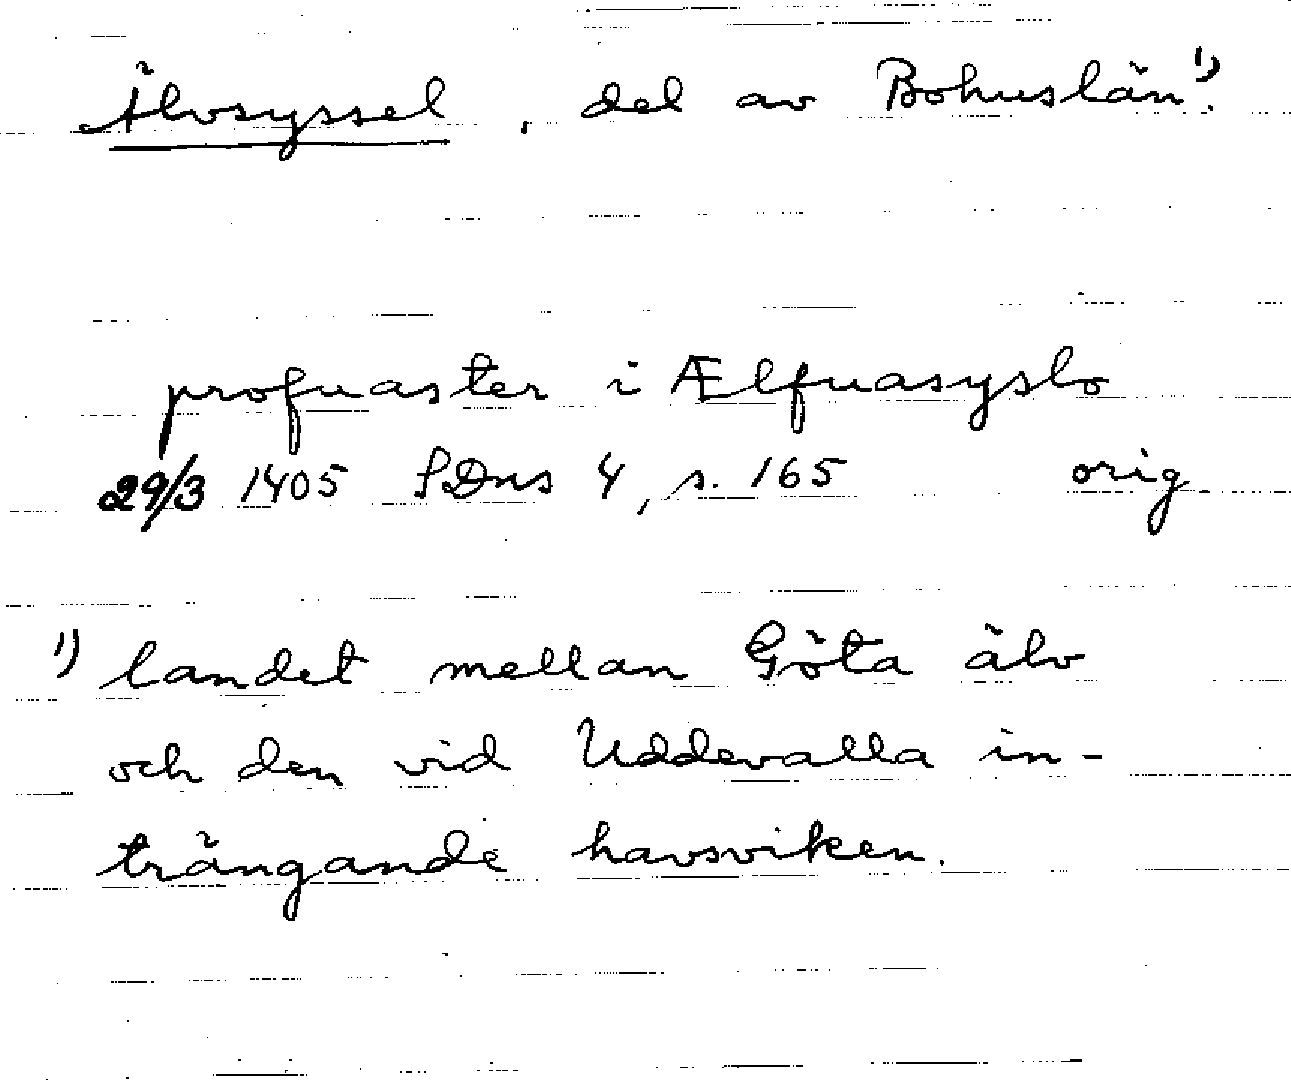 Älvsyssel, del av Bohuslän¹⁾.
profuaster i Ælfuasyslo
29/3 1405 SDns 4, s. 165 orig
¹⁾ landet mellan Göta älv
och den vid Uddevalla in-
trängande havsviken.